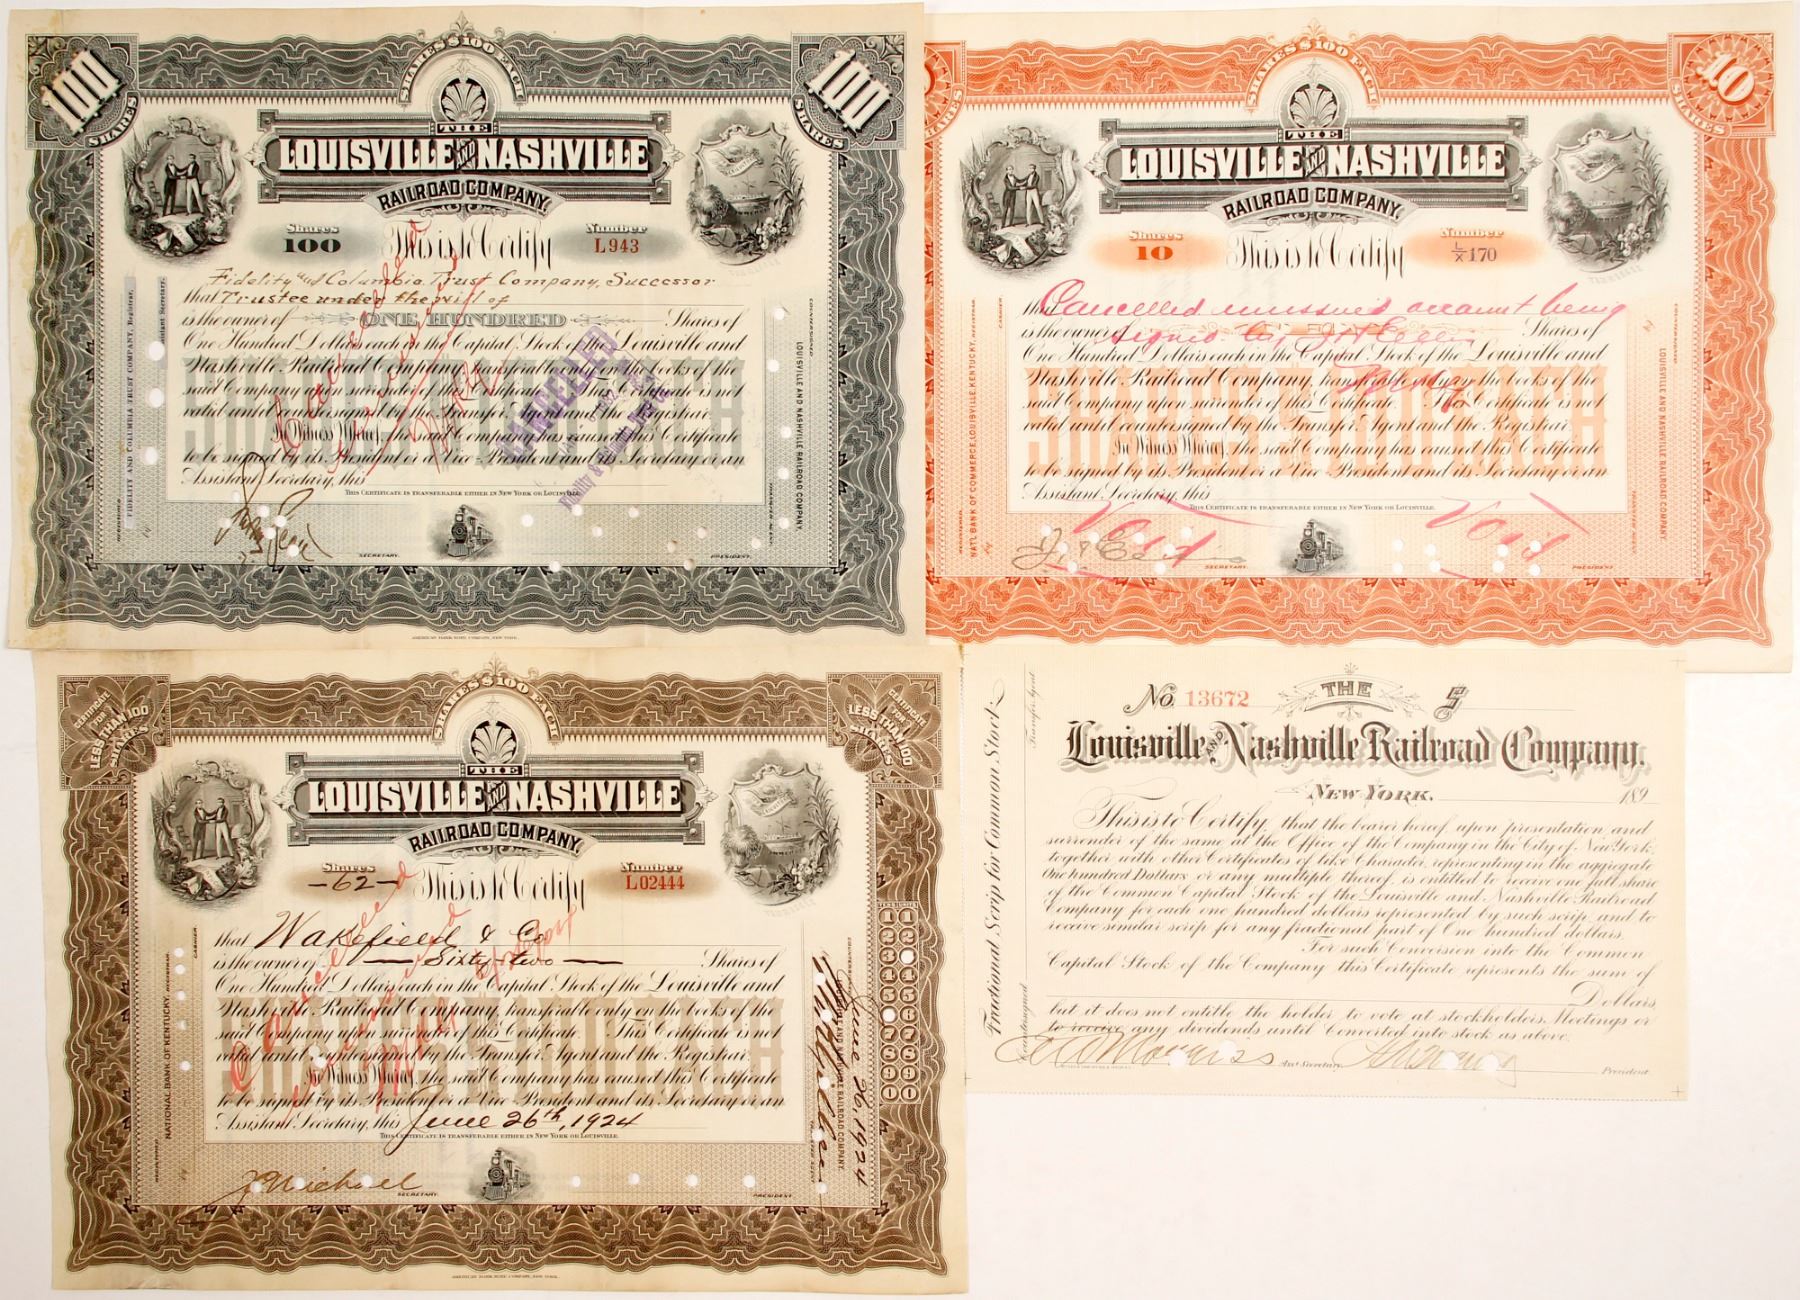 100 SHARES
SHARES $100 EACH
100 SHARES
THE
LOUISVILLE AND NASHVILLE
RAILROAD COMPANY.
Shares
100
This is to Certify
Number
L943
Fidelity and Columbia Trust Company, Successor
that Trustee under the will of
is the owner of ONE HUNDRED Shares of
One Hundred Dollars each in the Capital Stock of the Louisville and
Nashville Railroad Company, transferable only on the books of the
said Company upon surrender of this Certificate. This Certificate is not
valid until countersigned by the Transfer Agent and the Registrar.
In Witness Whereof, the said Company has caused this Certificate
to be signed by its President or a Vice-President and its Secretary or an
Assistant Secretary, this
THIS CERTIFICATE IS TRANSFERABLE EITHER IN NEW YORK OR LOUISVILLE.
SECRETARY.
PRESIDENT.
FIDELITY AND COLUMBIA TRUST COMPANY, Registrar,
Assistant Secretary.
REGISTERED
by
COUNTERSIGNED
LOUISVILLE AND NASHVILLE RAILROAD COMPANY.
TRANSFER AGENT.
Cancelled
CANCELLED
AMERICAN BANK NOTE COMPANY, NEW YORK.
SHARES
SHARES $100 EACH
10
SHARES
THE
LOUISVILLE AND NASHVILLE
RAILROAD COMPANY.
Shares
10
This is to Certify
Number
L/X 170
that
Cancelled unissued account being
is the owner of Shares of
signed by
One Hundred Dollars each in the Capital Stock of the Louisville and
Nashville Railroad Company, transferable only on the books of the
said Company upon surrender of this Certificate. This Certificate is not
valid until countersigned by the Transfer Agent and the Registrar.
In Witness Whereof, the said Company has caused this Certificate
to be signed by its President or a Vice-President and its Secretary or an
Assistant Secretary, this
THIS CERTIFICATE IS TRANSFERABLE EITHER IN NEW YORK OR LOUISVILLE.
Void
Void
SECRETARY.
PRESIDENT.
NAT'L BANK OF COMMERCE, LOUISVILLE, KENTUCKY, REGISTRAR.
CASHIER.
REGISTERED
by
COUNTERSIGNED
LOUISVILLE AND NASHVILLE RAILROAD COMPANY.
TRANSFER AGENT.
CERTIFICATE FOR LESS THAN 100 SHARES
SHARES $100 EACH
CERTIFICATE FOR LESS THAN 100 SHARES
THE
LOUISVILLE AND NASHVILLE
RAILROAD COMPANY.
Shares
-62-
This is to Certify
Number
L02444
that Wakefield & Co
is the owner of Sixty-two Shares of
One Hundred Dollars each in the Capital Stock of the Louisville and
Nashville Railroad Company, transferable only on the books of the
said Company upon surrender of this Certificate. This Certificate is not
valid until countersigned by the Transfer Agent and the Registrar.
In Witness Whereof, the said Company has caused this Certificate
to be signed by its President or a Vice-President and its Secretary or an
Assistant Secretary, this June 26th, 1924
THIS CERTIFICATE IS TRANSFERABLE EITHER IN NEW YORK OR LOUISVILLE.
J Michael
SECRETARY.
PRESIDENT.
Cancelled
NATIONAL BANK OF KENTUCKY, REGISTRAR.
CASHIER.
REGISTERED
by
COUNTERSIGNED
June 26, 1924
LOUISVILLE AND NASHVILLE RAILROAD COMPANY.
TRANSFER AGENT.
TENS UNITS
1 1
2 2
3
4 4
5 5
6 6
7
8 8
9 9
0 0
AMERICAN BANK NOTE COMPANY, NEW YORK.
No. 13672
THE
$
Louisville AND Nashville Railroad Company.
NEW YORK. 189
This is to Certify, that the bearer hereof, upon presentation and
surrender of the same at the Office of the Company in the City of New York,
together with other Certificates of like Character, representing in the aggregate
One hundred Dollars or any multiple thereof, is entitled to receive one full share
of the Common Capital Stock of the Louisville and Nashville Railroad
Company for each one hundred dollars represented by such scrip, and to
receive similar scrip for any fractional part of One hundred dollars.
For such Conversion into the Common
Capital Stock of the Company this Certificate represents the sum of
Dollars,
but it does not entitle the holder to vote at stockholders Meetings or
to receive any dividends until Converted into stock as above.
Ass't Secretary
President
Fractional Scrip for Common Stock
Countersigned
Transfer Agent